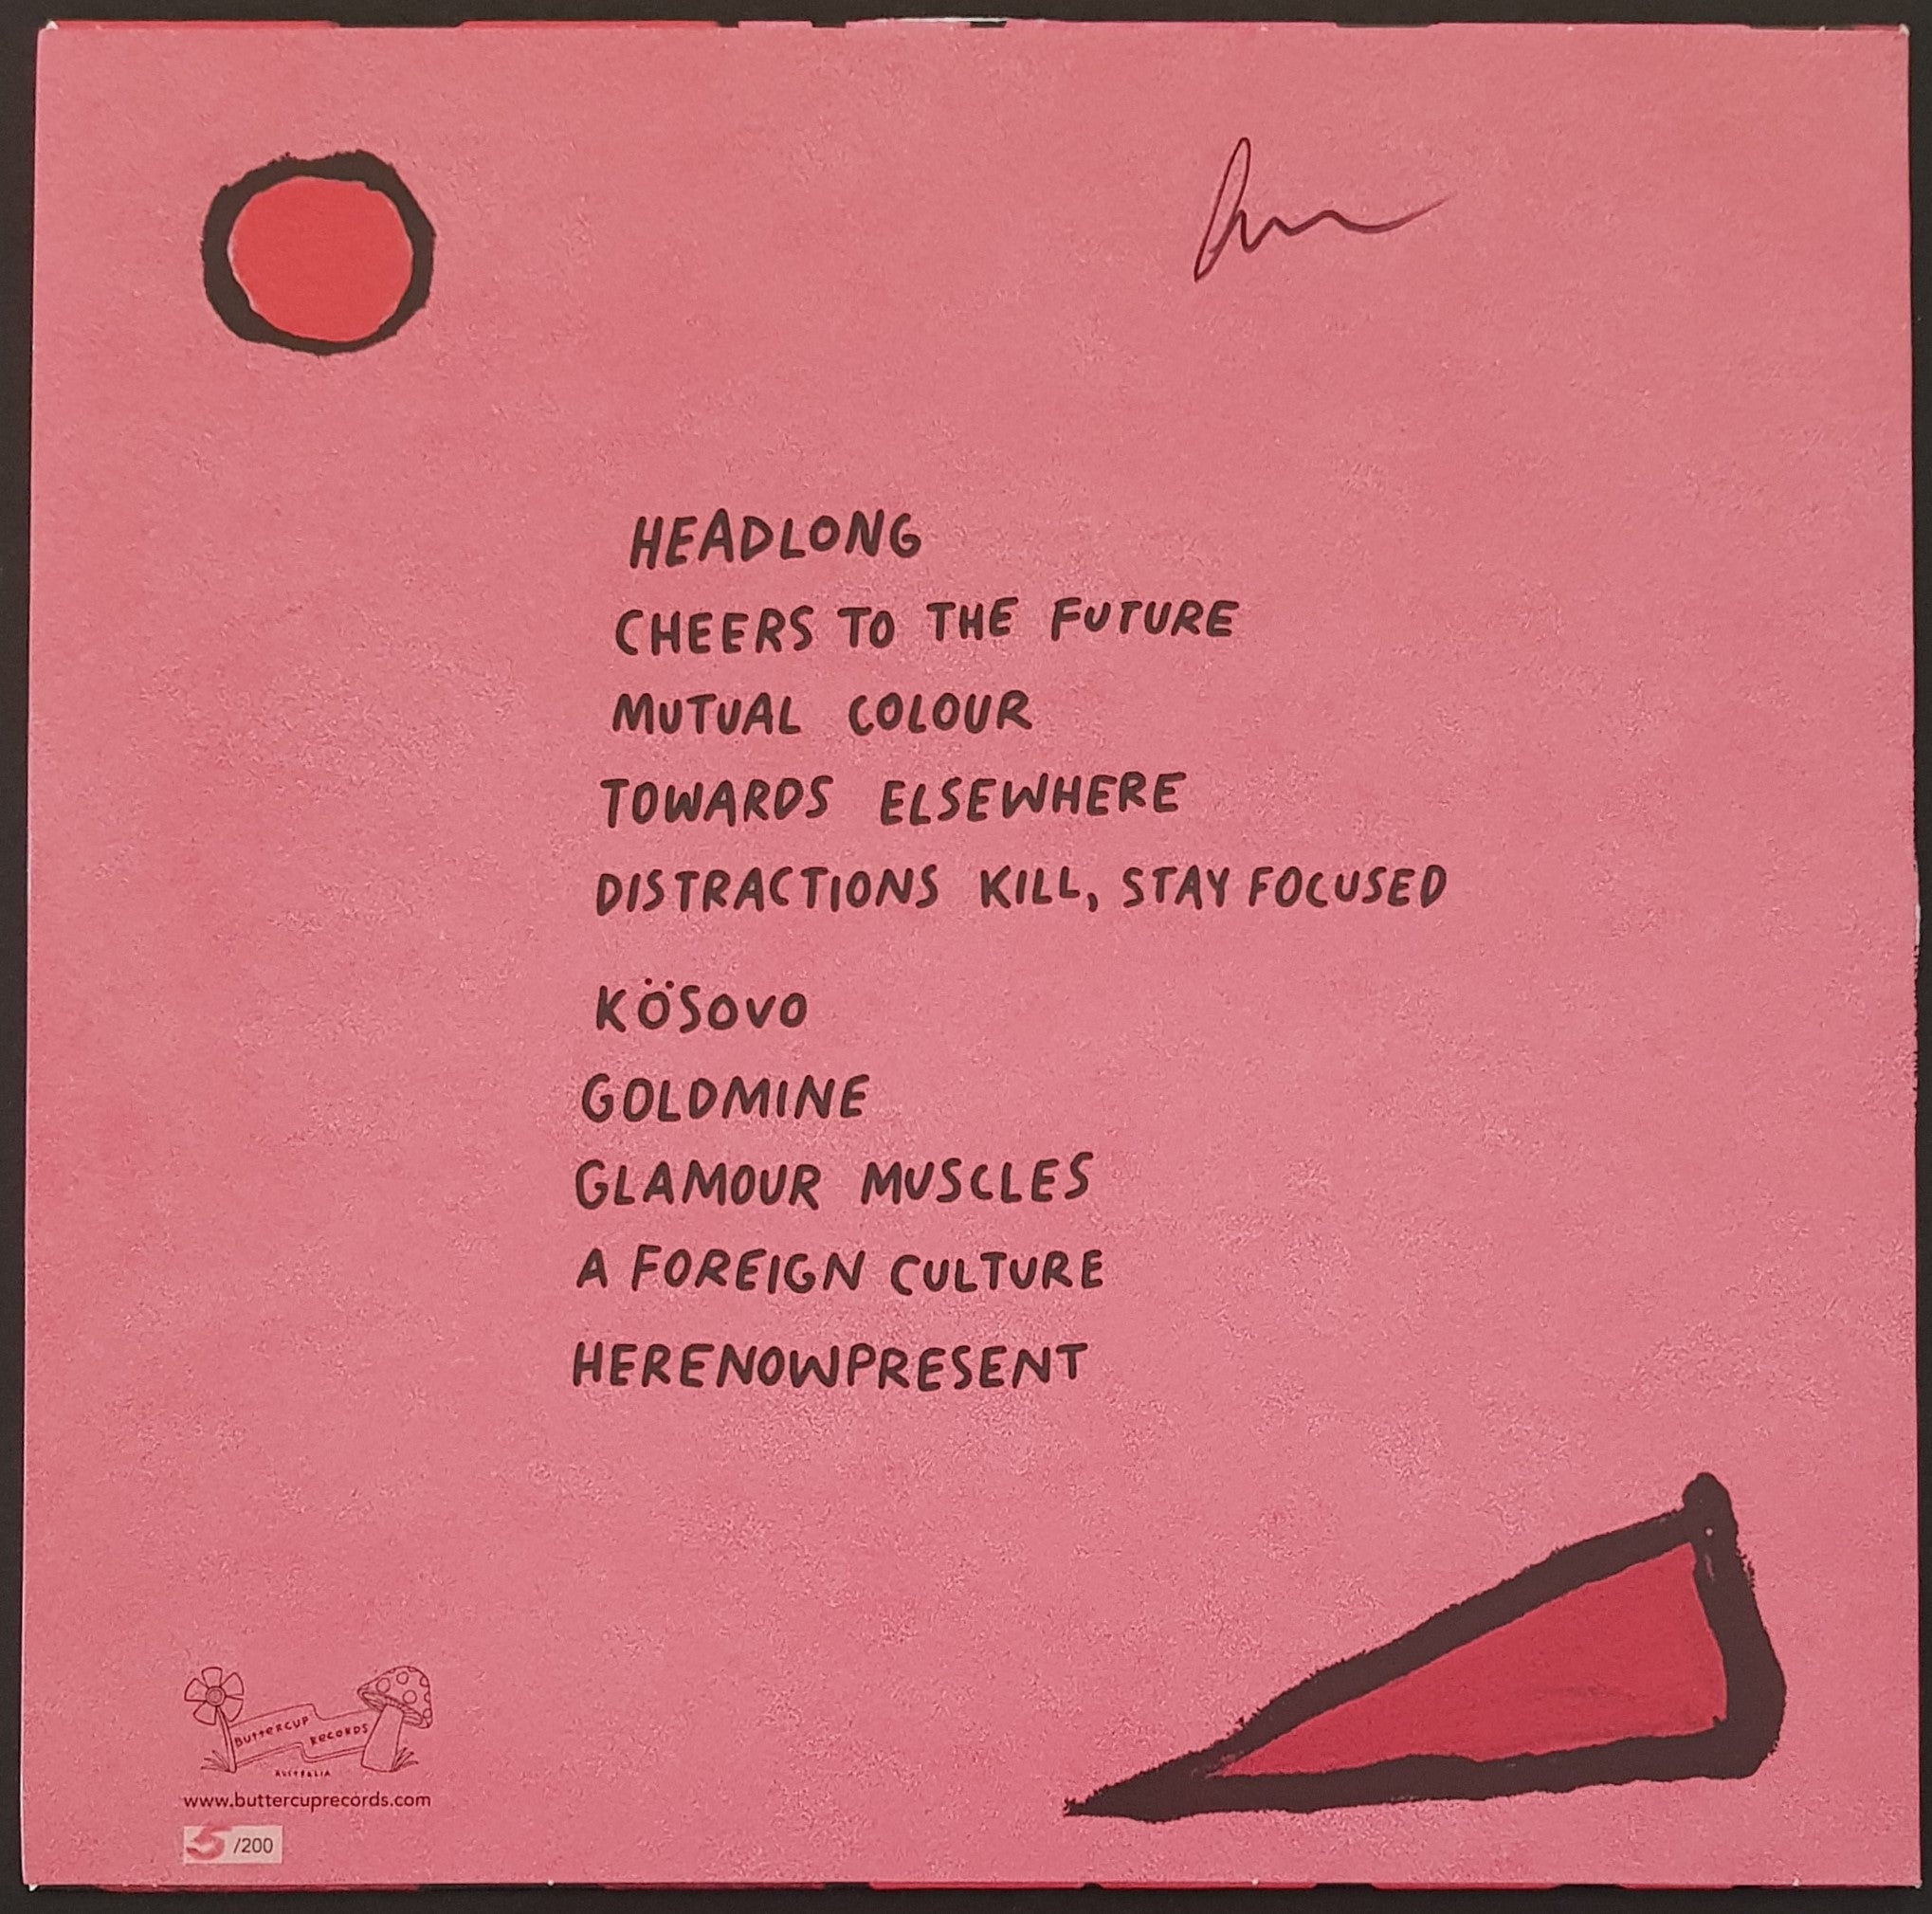 HEADLONG
CHEERS TO THE FUTURE
MUTUAL COLOUR
TOWARDS ELSEWHERE
DISTRACTIONS KILL, STAY FOCUSED
KÖSOVO
GOLDMINE
GLAMOUR MUSCLES
A FOREIGN CULTURE
HERENOWPRESENT
BUTTERCUP RECORDS
AUSTRALIA
www.buttercuprecords.com
5/200